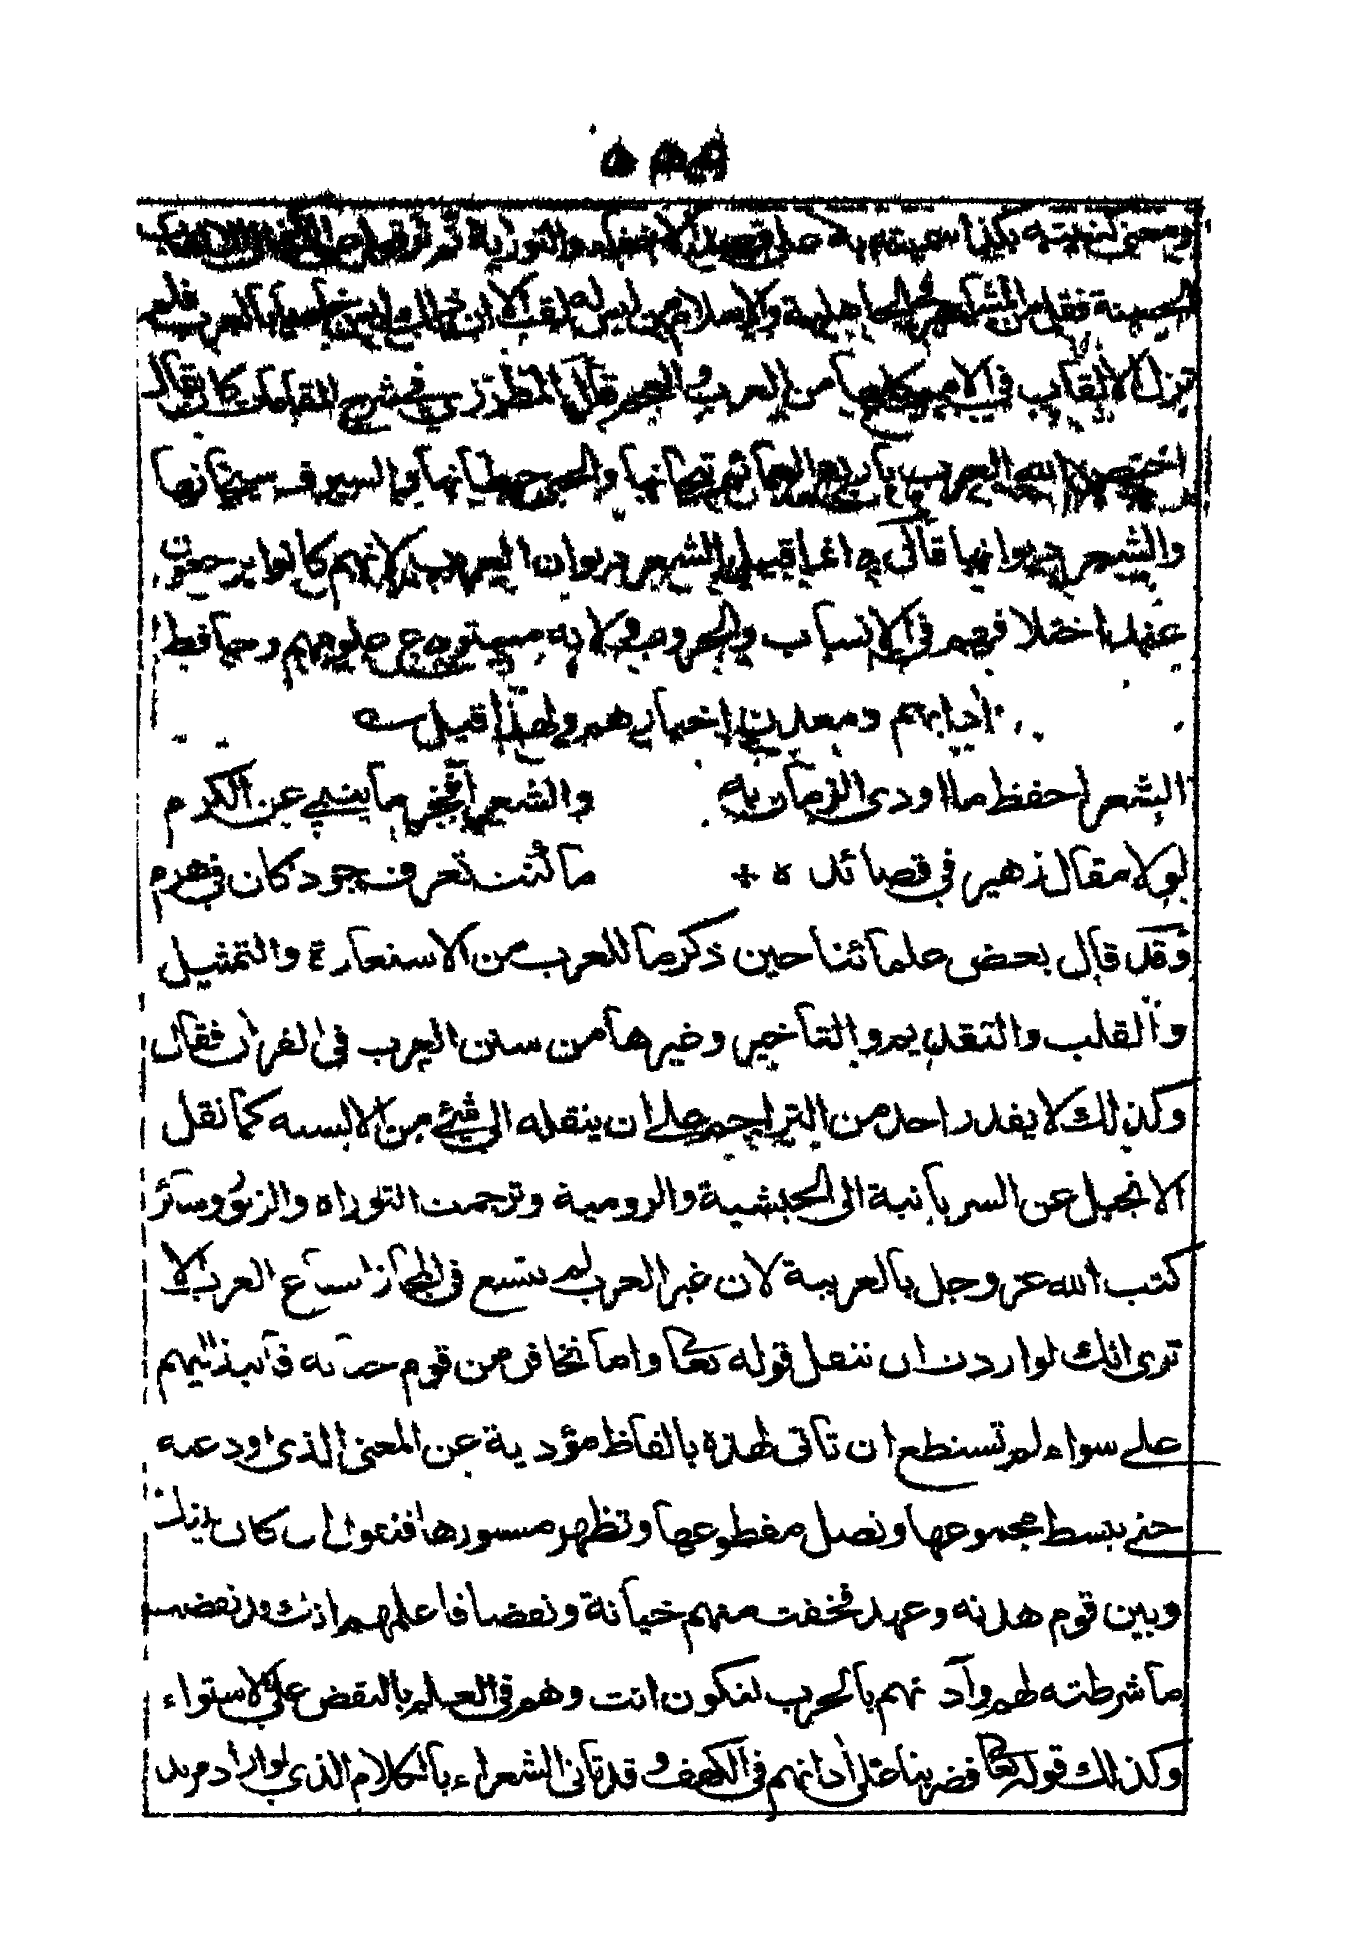 ومعنى كنيته بكذا سميته به على قصد الاخفاء والتورية ثم ترقوا عن الكنى الى الالقاب
الحسنة فقل من المشاهير في الجاهلية والاسلام من ليس له لقب الا ان ذلك ليس خاصا بالعرب فلم
تزل الالقاب في الامم كلها من العرب والعجم قال المطرزي في شرح المقامات كان يقال
اختص الله العرب باربع العمائم تيجانها والحبى حيطانها والسيوف سيجانها
والشعر ديوانها قال وانما قيل الشعر ديوان العرب لانهم كانوا يرجعون
عند اختلافهم في الانساب والحروب ولانه مستودع علومهم وحافظ
ادابهم ومعدن اخبارهم ولهذا قيل
الشعر احفظ ما اودى الزمان به والشعر افخر ما ينبي عن الكرم
لولا مقال زهير في قصائد ه ما كنت تعرف جود كان في هرم
وقد قال بعض علمائنا حين ذكر ما للعرب من الاستعارة والتمثيل
والقلب والتقديم والتاخير وغيرها من سنن العرب في القران فقال
وكذلك لا يقدر احد من التراجم على ان ينقله الى شئ من الالسنة كما نقل
الانجيل عن السريانية الى الحبشية والرومية وترجمت التوراه والزبور وسائر
كتب الله عز وجل بالعربية لان غير العرب لم تتسع في المجاز اتساع العرب الا
ترى انك لو اردت ان تنقل قوله تعالى واما تخافن من قوم خيانة فانبذ اليهم
على سواء لم تستطع ان تاتى لهذه بالفاظ مؤدية عن المعنى الذى اودعته
حتى تبسط مجموعها وتصل مقطوعها وتظهر مستورها فتقول ان كان بينك
وبين قوم هدنه وعهد فخفت منهم خيانة ونقضا فاعلمهم انك قد نقضت
ما شرطته لهم واذنهم بالحرب لتكون انت وهم في العلم بالنقض على الاستواء
وكذلك قوله تعالى فضربنا على اذانهم في الكهف وقد تاتى الشعراء بالكلام الذي لو اراد مريد